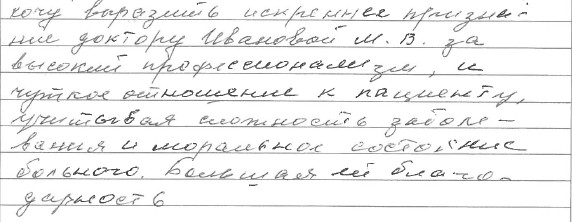 хочу выразить искреннее призна-
ние доктору Ивановой М. В. за
высокий профессионализм, и
чуткое отношение к пациенту,
учитывая сложность заболе-
вания и моральное состояние
больного. Большая ей благо-
дарность